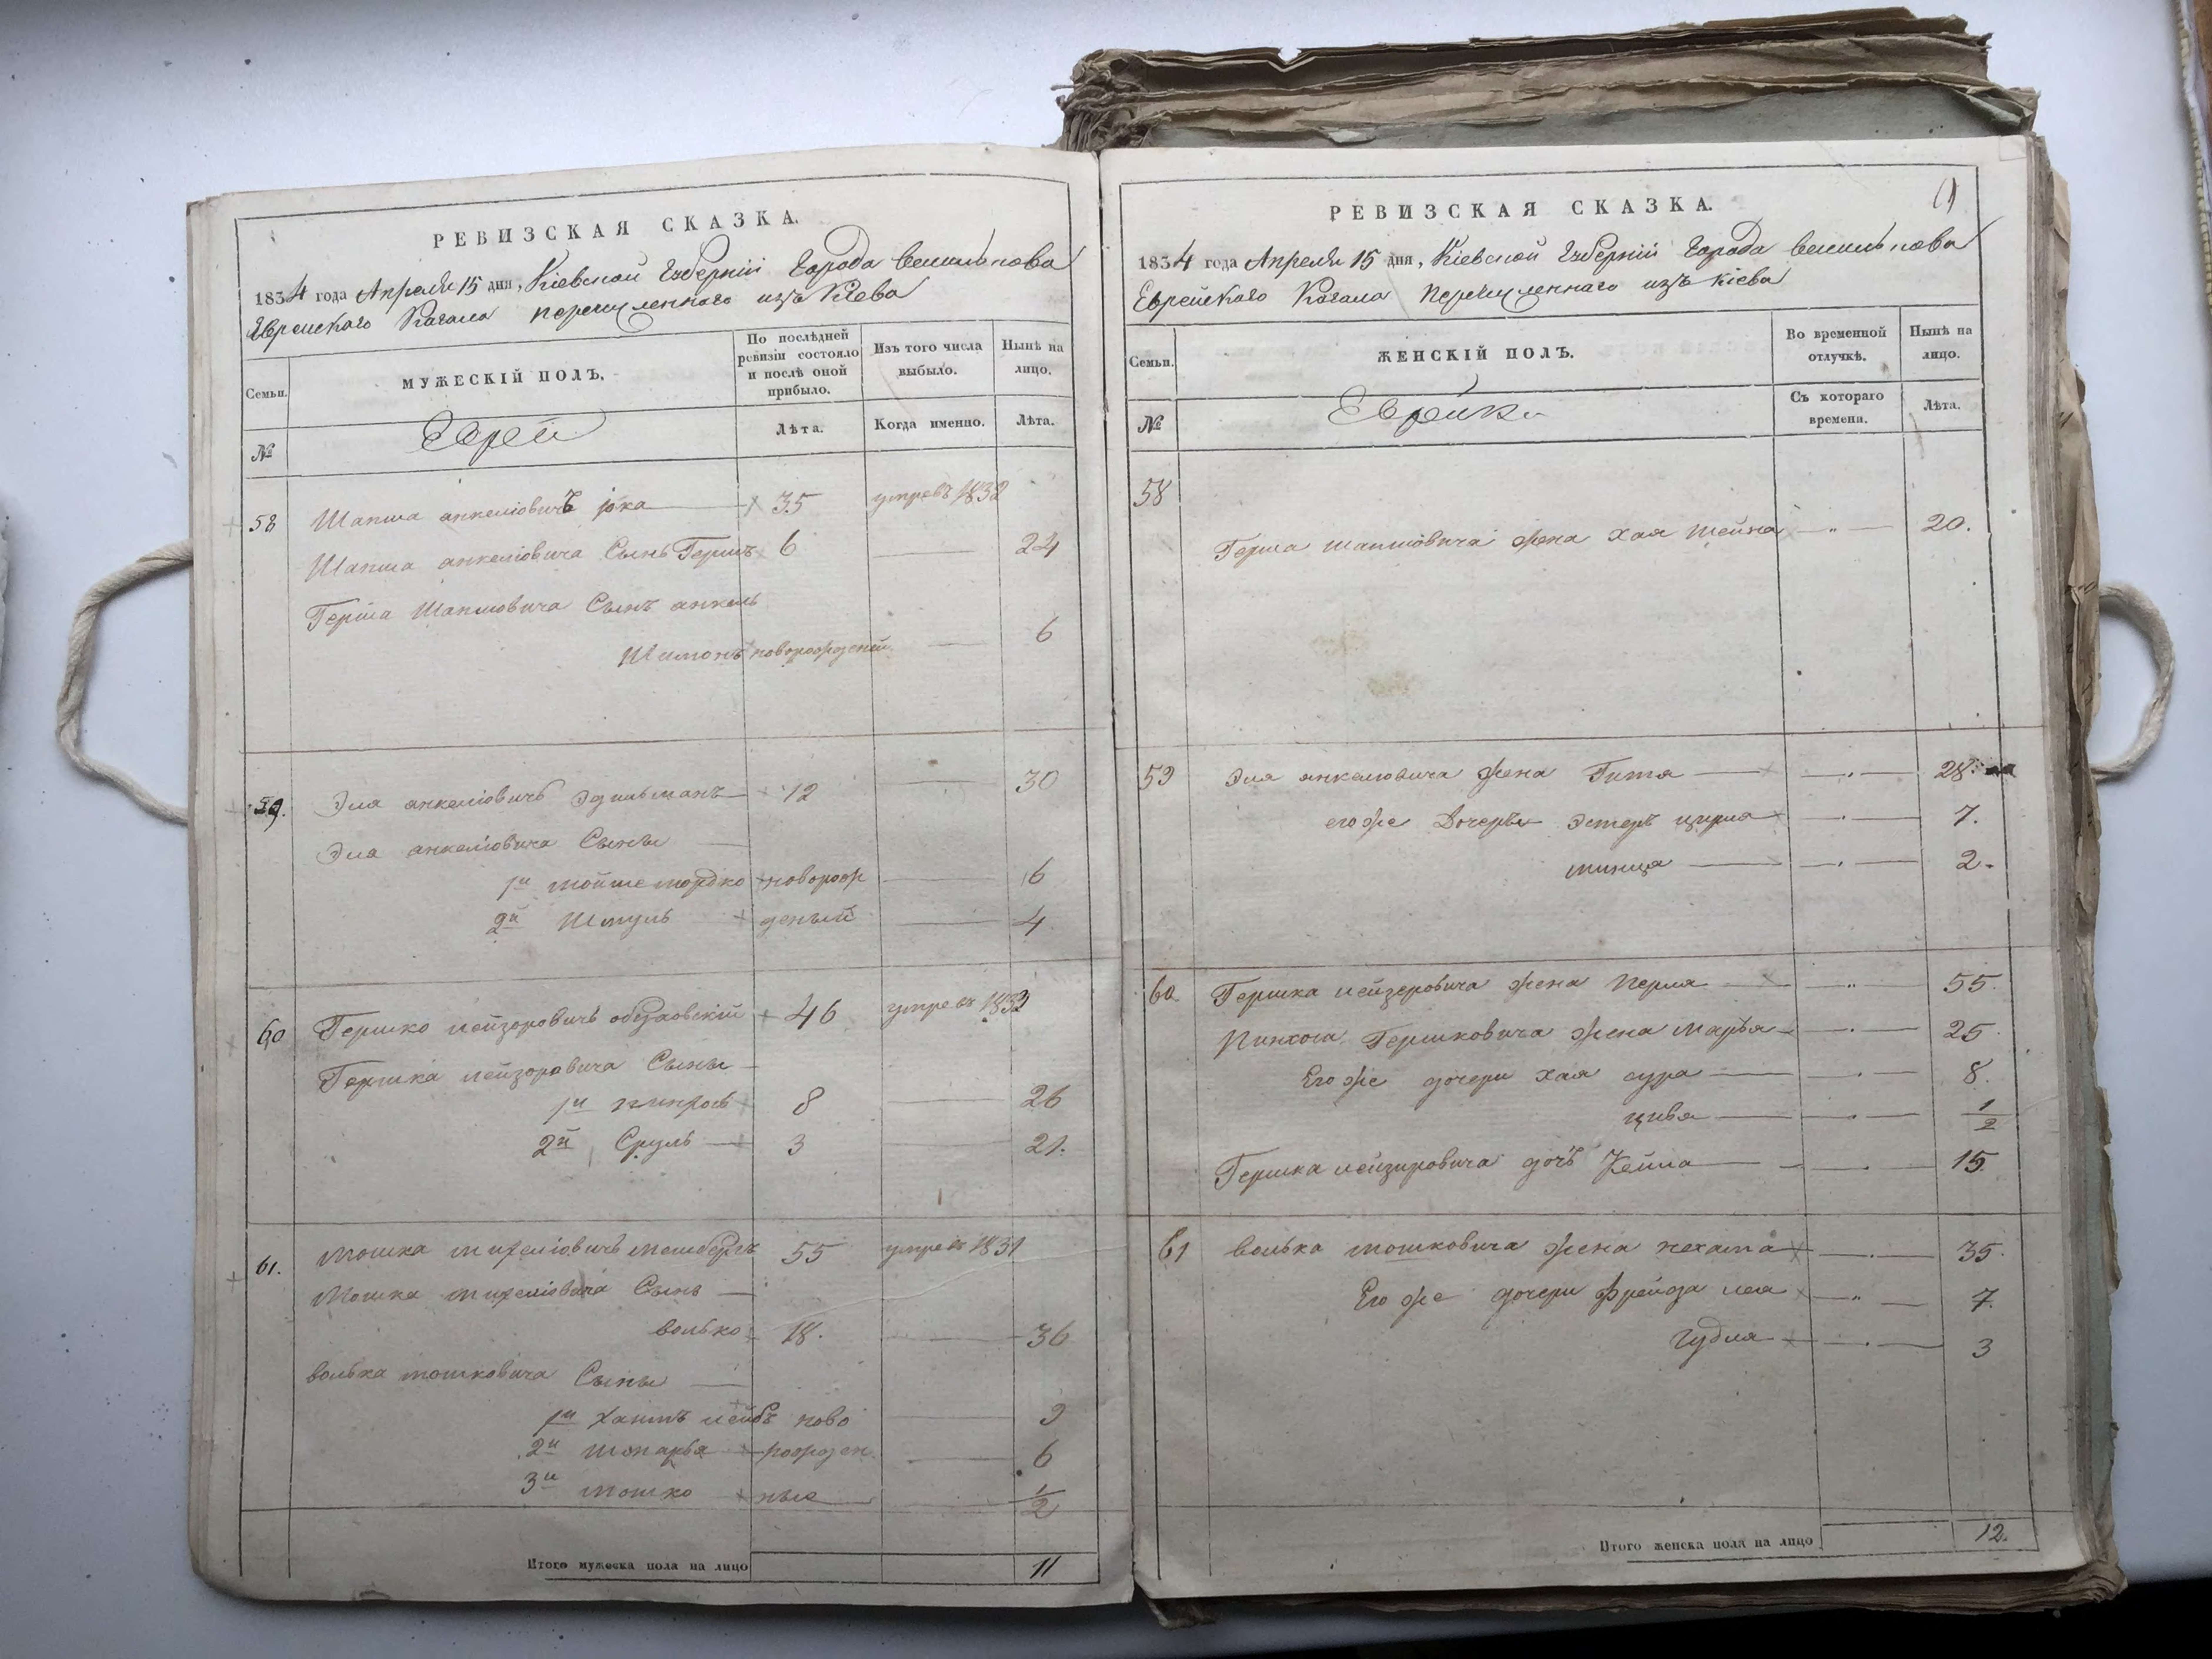 РЕВИЗСКАЯ СКАЗКА.
1834 года Апреля 15 дня, Кіевской Губерніи Города Василькова
Еврейскаго Кагала перечисленнаго изъ Кіева
Семьи.
МУЖЕСКІЙ ПОЛЪ.
По послѣдней ревизіи состояло и послѣ оной прибыло.
Изъ того числа выбыло.
Нынѣ на лицо.
№
Евреи
Лѣта.
Когда именно.
Лѣта.
58 Шапша анкеліовичъ 35 умревъ 1832
Шапша анкеліовича Сынъ Гершъ 6 — 24
Герша Шапшовича Сынъ анкель
Шимонъ новорожденый — 6
59. Эля анкеліовичъ Эдильманъ — 12 — 30
Эля анкеліовича Сыны —
1й мойше мордко новорож — 6
2й Шмуль деный — 4
60 Гершко лейзоровичъ 46 умревъ 1832
Гершка лейзоровича Сыны —
1й пинхось 8 — 26
2й Сруль — 3 — 21.
61. мошка 55 умревъ 1831
Мошка Сынъ —
волько 18. — 36
волька мошковича Сыны —
1й хаимъ лейбъ ново — 9
2й рожден — 6
3й мошко ные — 1/2
Итого мужеска пола на лицо 11
РЕВИЗСКАЯ СКАЗКА.
1834 года Апреля 15 дня, Кіевской Губерніи Города Василькова
Еврейскаго Кагала перечисленнаго изъ Кіева
Семьи.
ЖЕНСКІЙ ПОЛЪ.
Во временной отлучкѣ.
Нынѣ на лицо.
№
Еврейки
Съ котораго времени.
Лѣта.
58
Герша шапшовича жена хая шейна — " — 20.
59 Эля анкеліовича жена Гитя — " — 28.
его же Дочеры Эстеръ цирля — " — 7.
минця — " — 2.
60 Гершка лейзеровича жена Перля — " — 55.
Пинхоса Гершковича жена марья — " — 25
Его же дочери хая сура — " — 8.
цивя — " — 1/2
Гершка лейзировича дочъ — " — 15.
61 волька мошковича жена нехама — " — 35.
Его же дочери фрейда лея — " — 7.
гудля — " — 3
Итого женска пола на лицо 12.